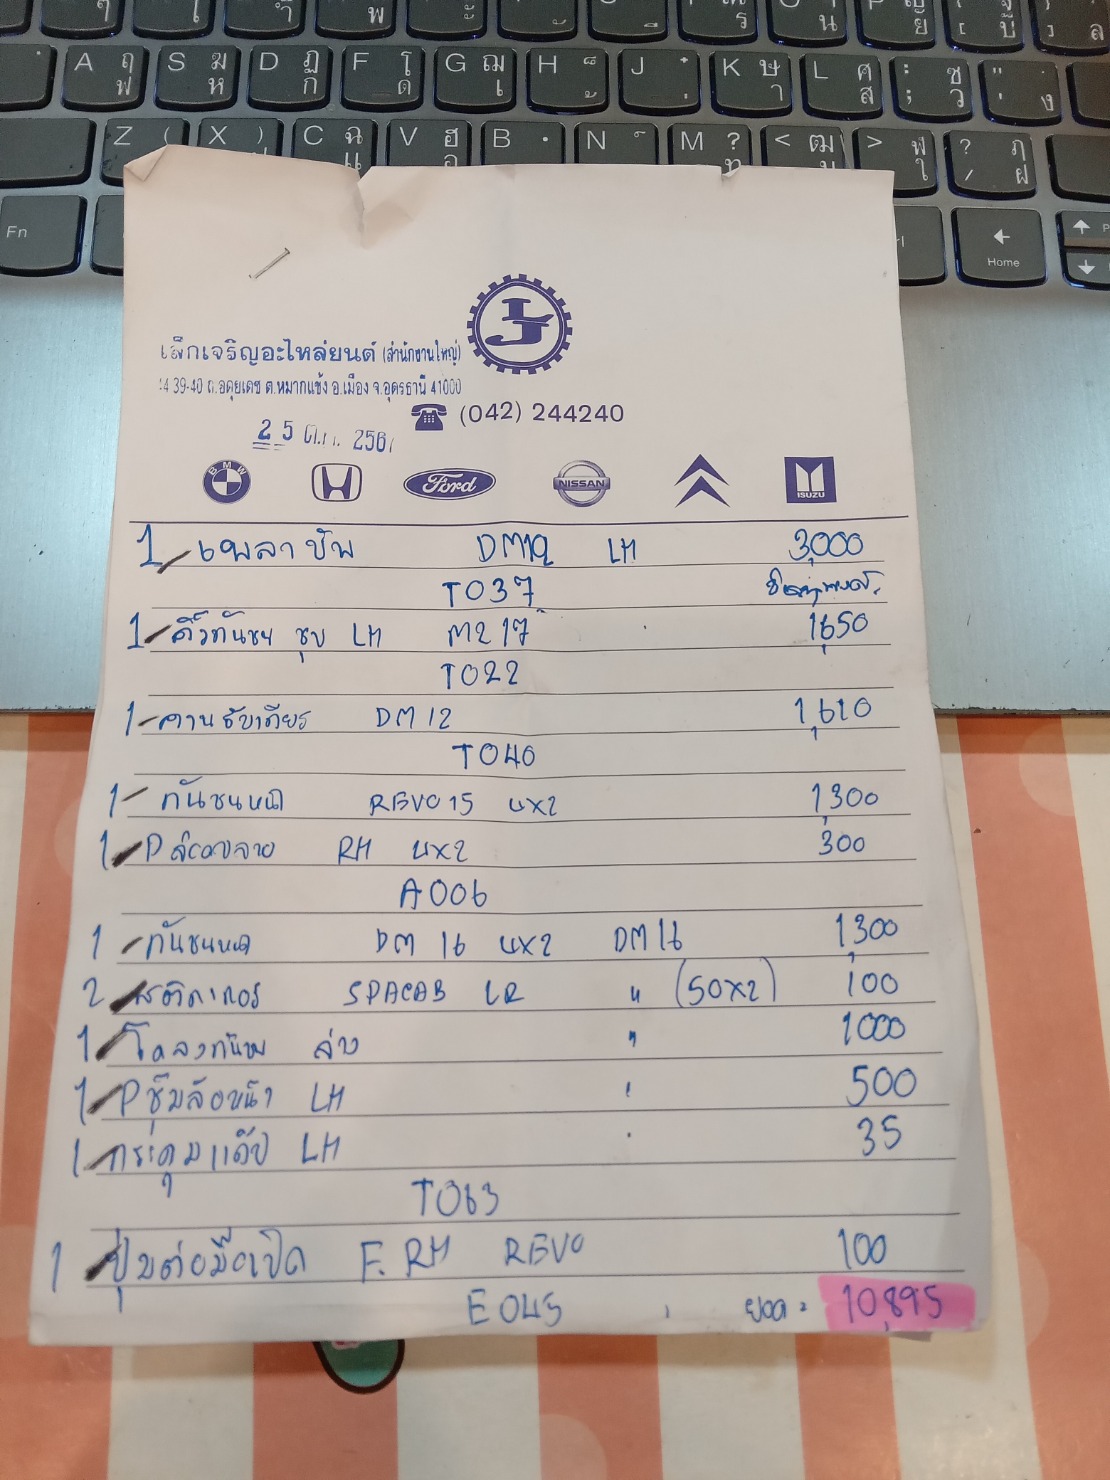 A ฤ ฟ S ฆ ห D ฏ ก F โ ด G ฌ เ H ็ ้ J ๋ ่ K ษ า L ศ ส : ; ซ ว " ' . ง
Z ( X ) C ฉ แ V ฮ อ B N ์ M ? ท < ฒ ม > ฬ ใ ? / ฦ ฝ
Fn Home
LJ
เล็กเจริญอะไหล่ยนต์ (สำนักงานใหญ่)
39-40 ถ.อดุยเดช ต.หมากแข้ง อ.เมือง จ.อุดรธานี 41000
(042) 244240
25 ต.ค. 256
BMW Ford NISSAN ISUZU
1 เพลาขับ DM12 LH 3,000
T037
1 คิ้วกันชน ชุบ LH M217 1,650
T022
1 คานรับเกียร์ DM12 1,610
T040
1 กันชนหน้า REVO 15 4X2 1,300
1 P RH 4X2 300
A006
1 กันชนหน้า DM 16 4X2 DM16 1,300
2 สติกเกอร์ SPACAB LR " (50X2) 100
1 โครงกันชน ล่าง " 1000
1 P ซุ้มล้อหน้า LH ' 500
1 กระดุมแค๊ป LH 35
T063
1 ปุ่มต่อมือเปิด F. RH REVO 100
E045 ยอด = 10,895